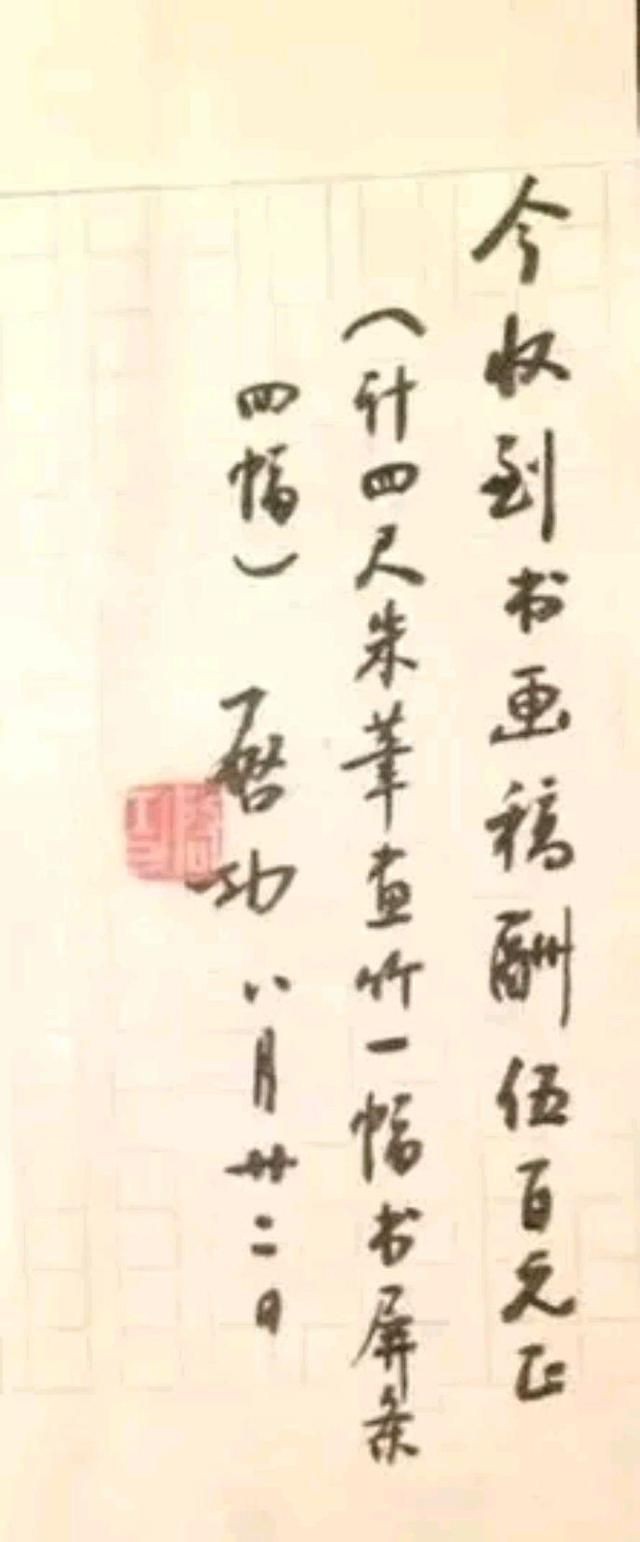 今收到书画稿酬伍百元正
（计四尺朱笔画竹一幅书屏条
四幅） 启功 八月廿二日